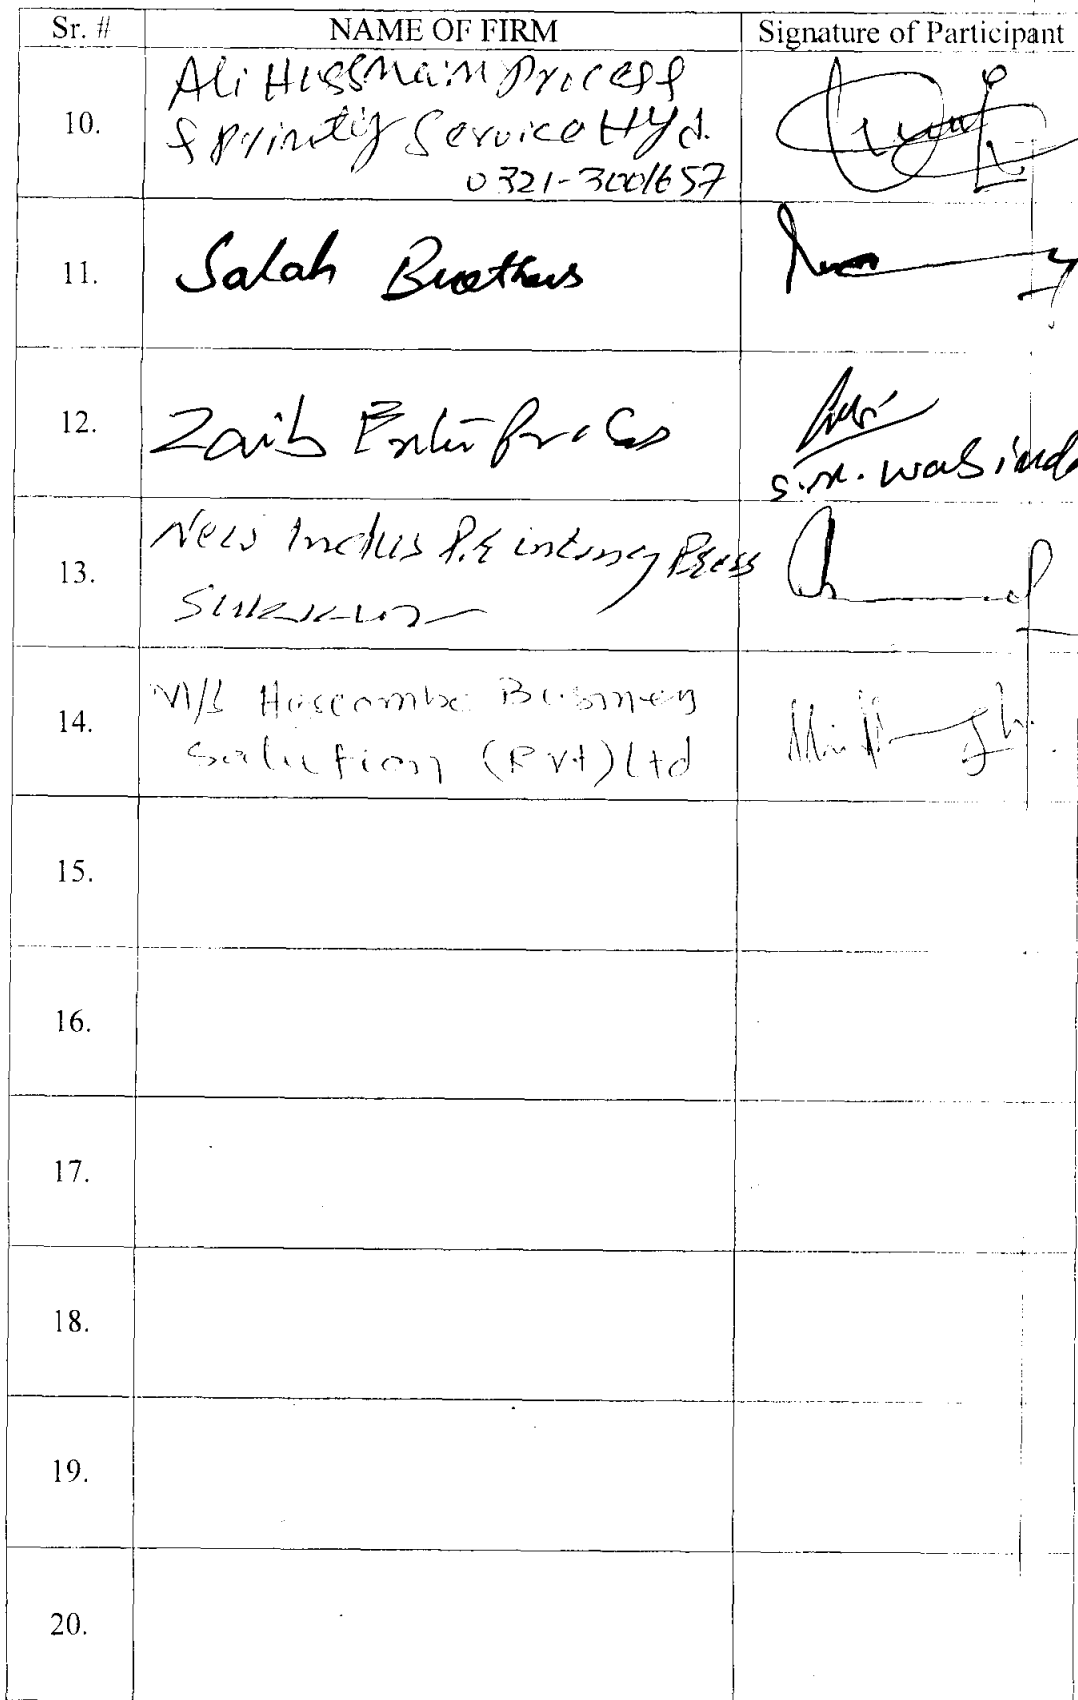 Sr. # NAME OF FIRM Signature of Participant
10. Ali Hussnain Process
& Printing Service Hyd.
0321-3001657
11. Salah Brothers
12. Zaib Enterprises
S.M.
13. New Indus Printing Press
Sukkur
14. M/S Huscombe Business
Solution (Pvt) Ltd
15.
16.
17.
18.
19.
20.